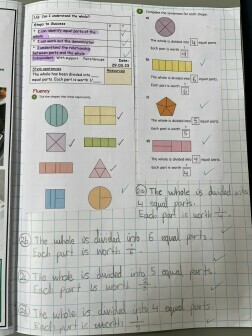 LQ: Can I understand the whole?
Steps to Success
I can identify equal parts of the whole
I can work out the denominator
I understand the relationship between parts and the whole
Independent With support
Date:
Stem sentences
Resources
The whole has been divided into
equal parts. Each part is worth
Fluency
Complete the sentences for each shape.
a)
The whole is divided into 4 equal parts.
Each part is worth 1/4
b)
The whole is divided into 6 equal parts.
Each part is worth 1/6
c)
The whole is divided into 5 equal parts.
Each part is worth 1/5
d)
The whole is divided into 4 equal parts.
Each part is worth 1/4
2a) The whole is divided into
4 equal parts.
Each part is worth 1/4
2b) The whole is divided into 6 equal parts.
Each part is worth 1/6
2c) The whole is divided into 5 equal parts.
Each part is worth
2d) The whole is divided into 4 equal parts.
Each part is worth 1/4